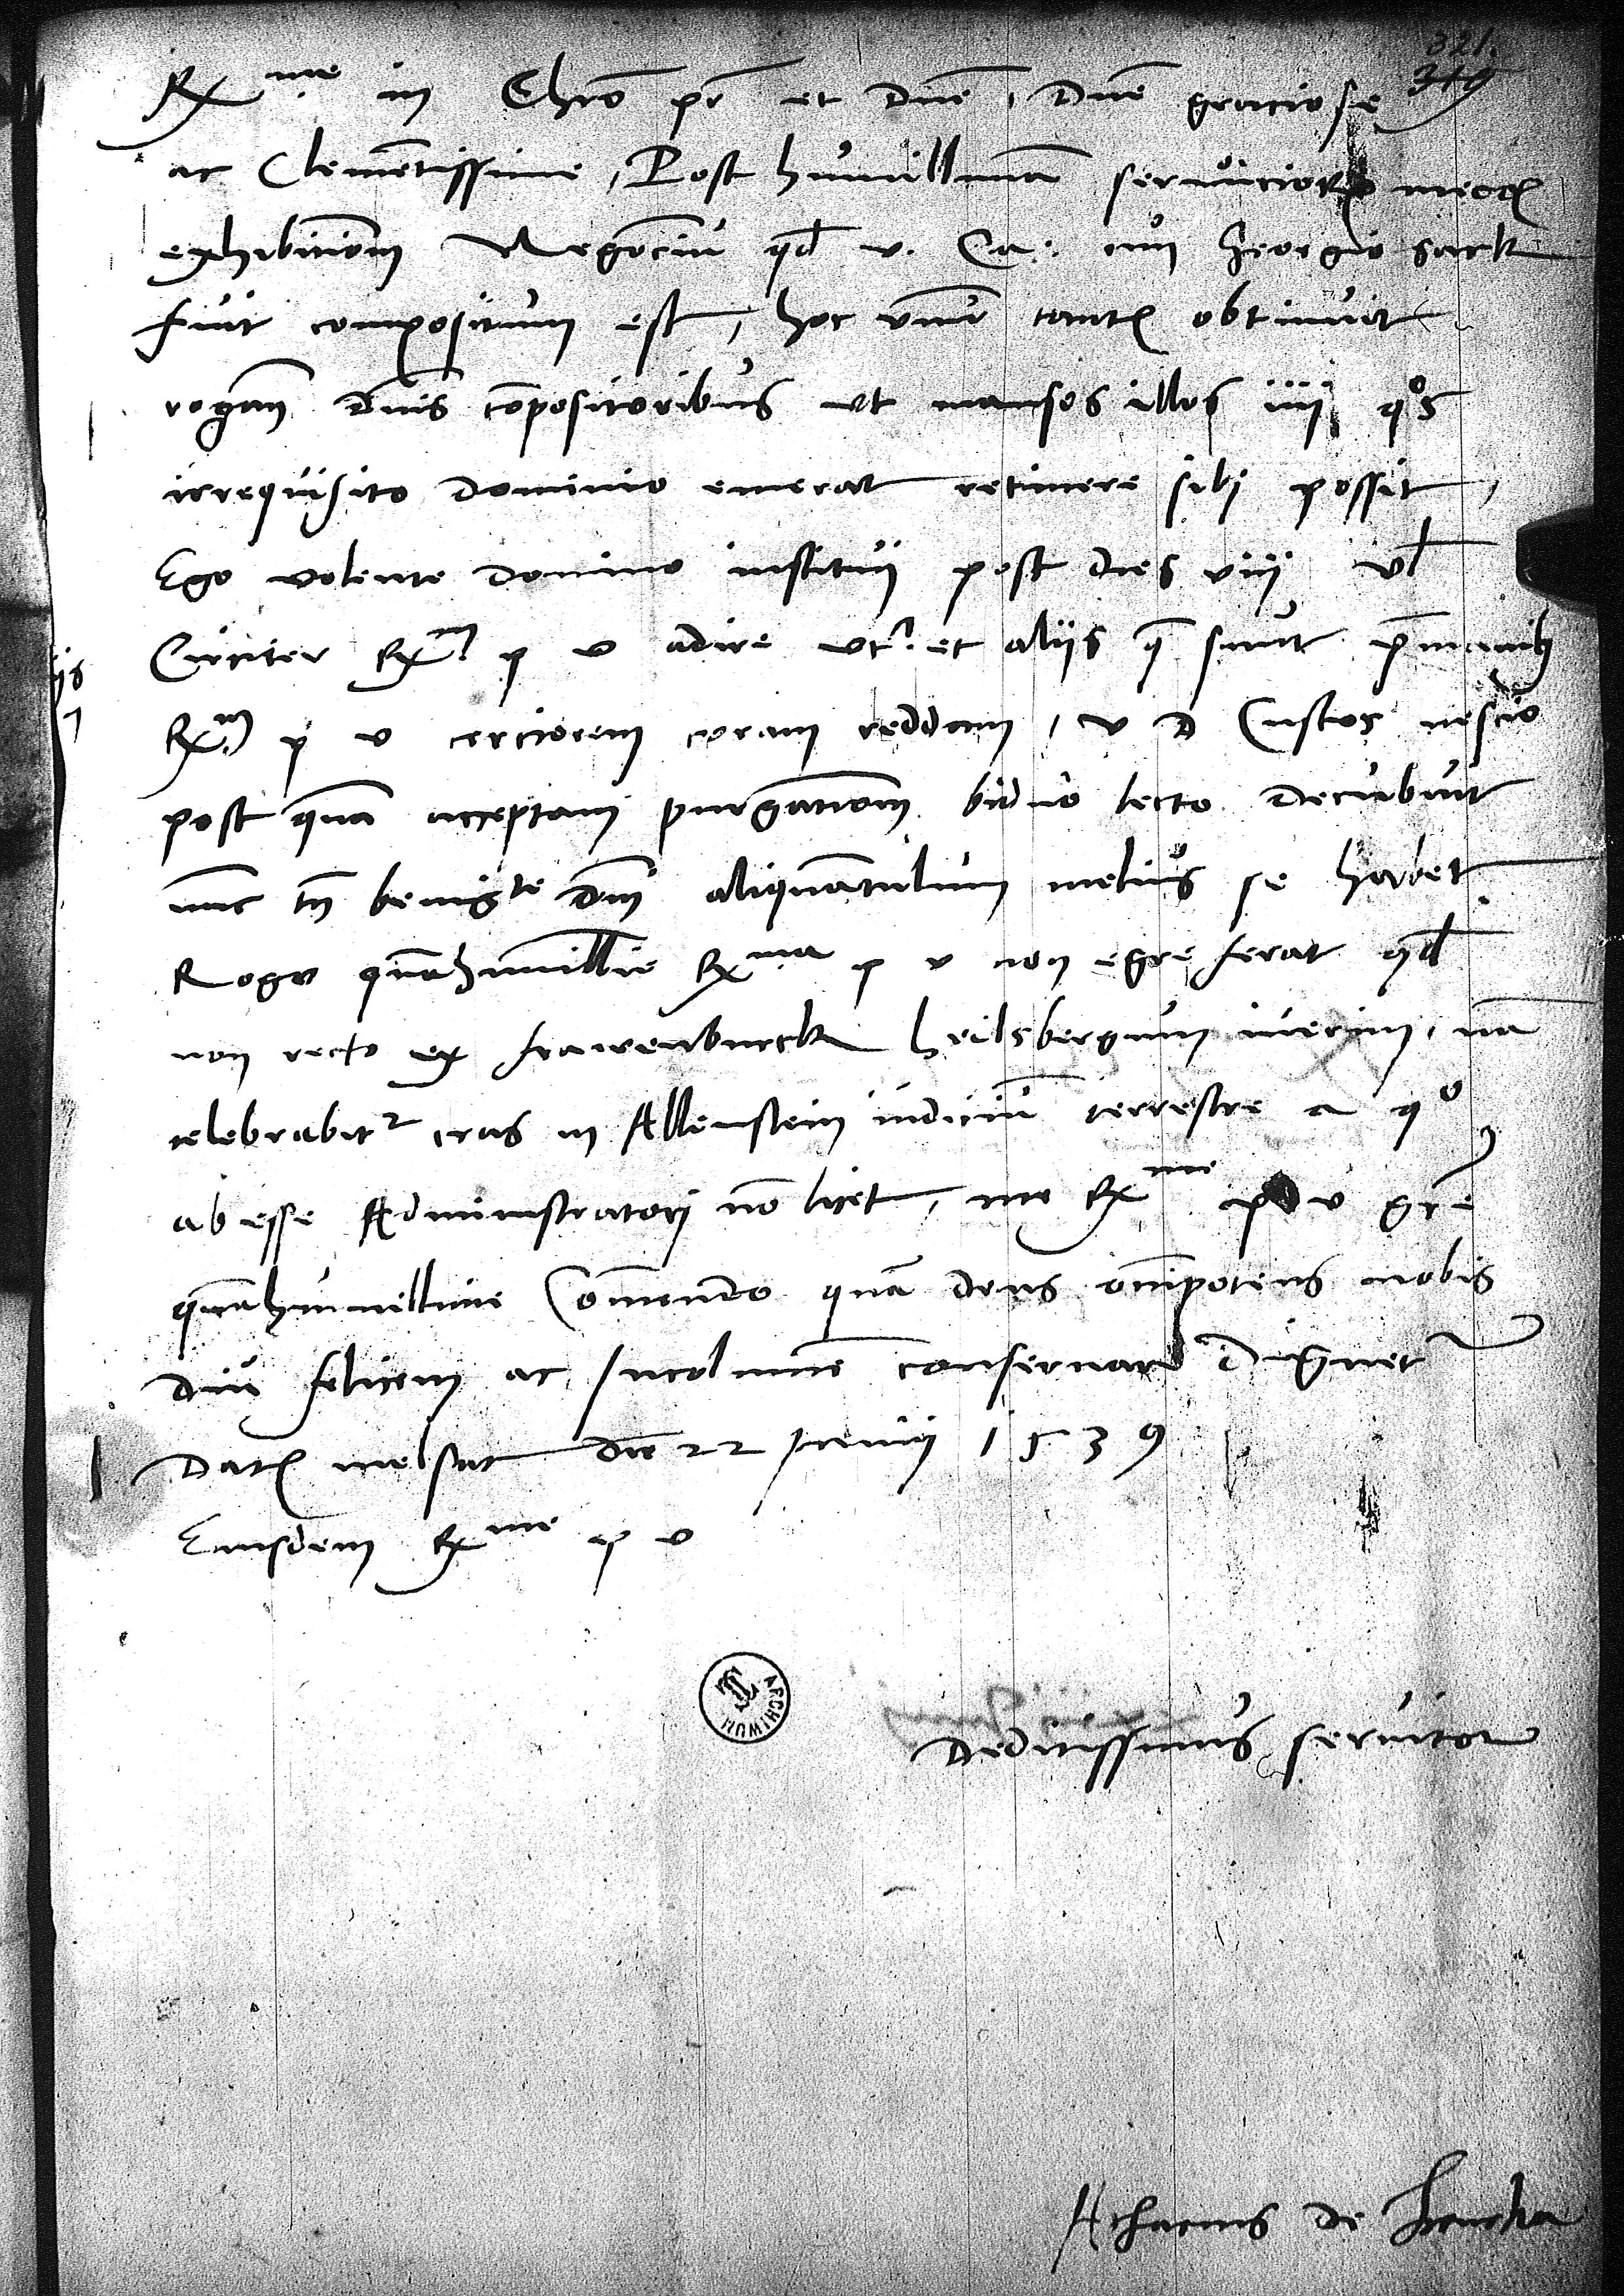 321.
319
Rx^me in Chro pr et dne, dne graciose
ac Clementissime, Post humillimam seruiciorum meorum
exhibitionem Negocium qd v. Ca: cum Georgio Sack
fuit compositum est, hoc vnum tantum obtinuit
rogam dnis compositoribus ut mansos illos iiij quos
irrequisito dominio emerat retinere sibj possit,
Ego volente domino institui post dies viij vl
Circiter Rx^m p v adire vt et aliis que sunt pre manib
Rx^m p v certiorem coram reddam, v d Custos nescio
post quam acceptam purgationem biduo lecto decubuit
nunc tn benig^te dni aliquantulum melius se habet.
Rogo quahumillime Rx^ma p v non egre ferat qd
non recto ex frawenburck heilsbergum iuerim, na
celebrabitur cras in Allenstein iudicium terrestre a quo
abesse Administratorj no licet, me Rx^me p v gre
quahumillime Commendo qua deus omipotens nobis
diu felicem ac Incolumem conseruare dignet
Dat melsac die 22 Junij 1539
Eiusdem Rx^me p v
ARCHIWUM
deditissimus seruitor
Achacius de Trencka